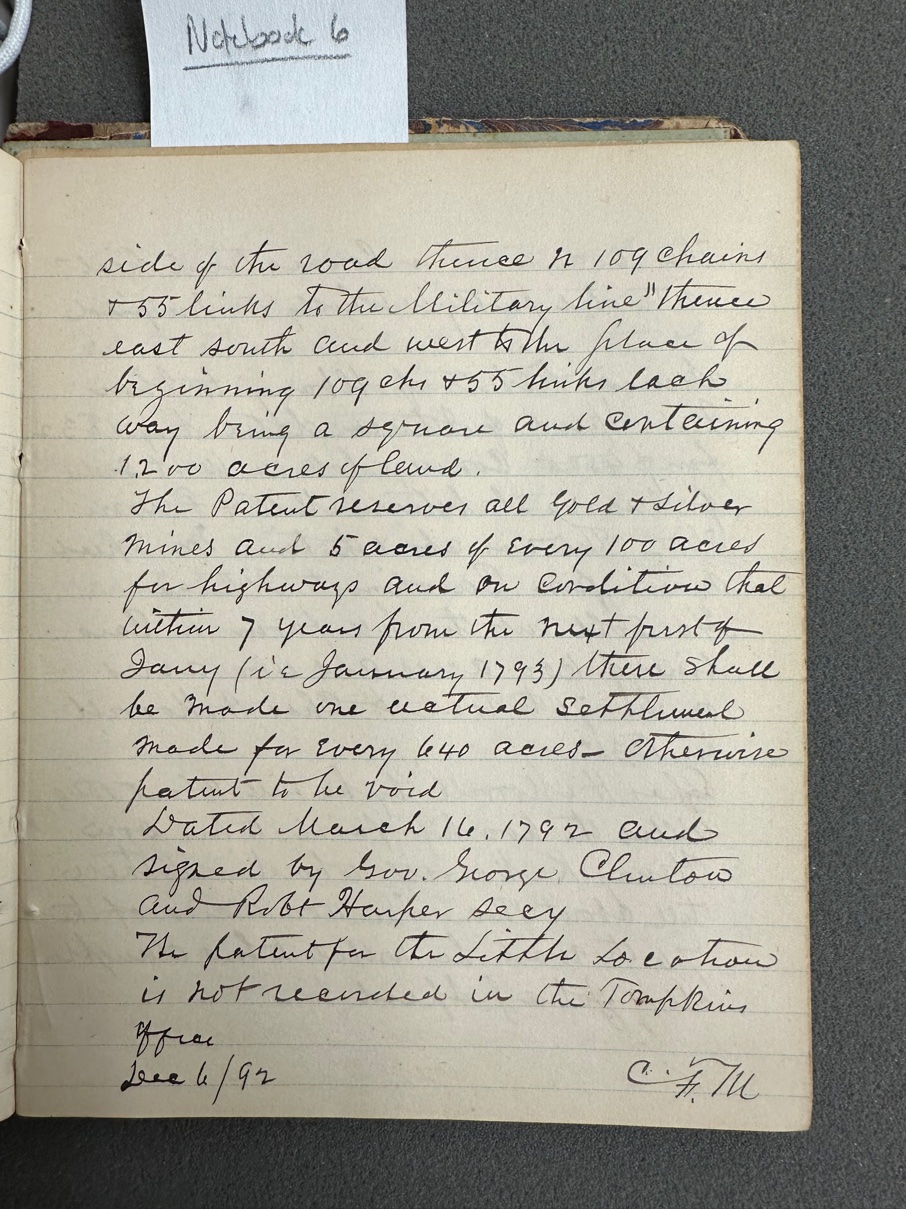 Notebook 6
side of the road thence N 109 chains
+ 55 links to the Military line" thence
east south and west to the place of
beginning 109 chs + 55 links each
way being a square and containing
1200 acres of land.
The Patent reserves all Gold + Silver
mines and 5 acres of every 100 acres
for highways and on condition that
within 7 years from the next first of
Jany (ie January 1793) there shall
be made one actual settlement
made for every 640 acres - otherwise
patent to be void
Dated March 16. 1792 and
signed by Gov. George Clinton
and Robt Harper secy
The patent for the Little Location
is not recorded in the Tompkins
office
Dec 6/92 C. F. M